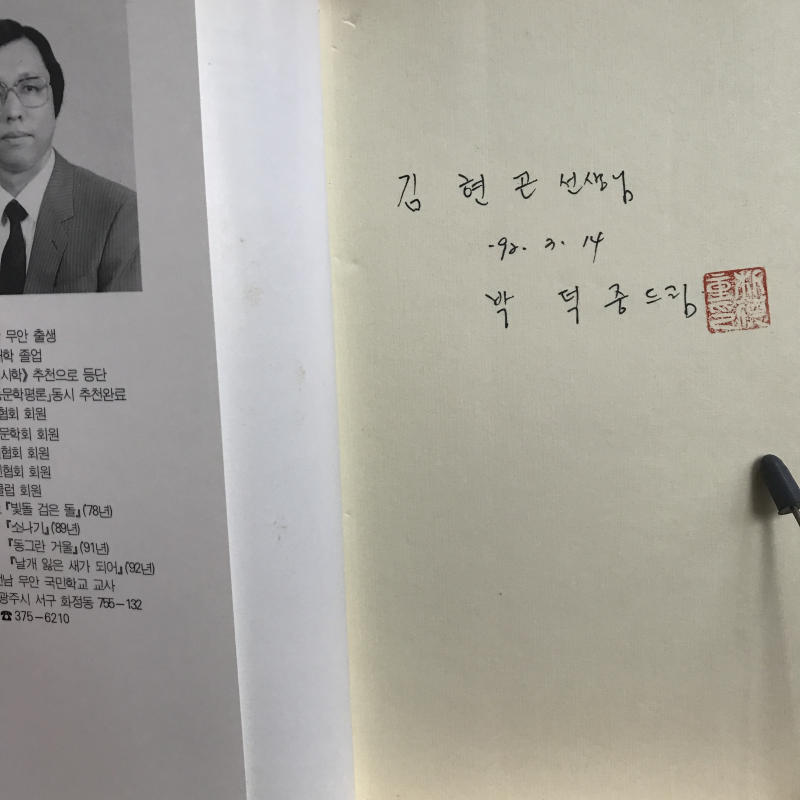 무안 출생
대학 졸업
시학》 추천으로 등단
문학평론」동시 추천완료
협회 회원
문학회 회원
협회 회원
협회 회원
클럽 회원
『빛돌 검은 돌』('78년)
『소나기』('89년)
『동그란 거울』('91년)
『날개 잃은 새가 되어』('92년)
전남 무안 국민학교 교사
광주시 서구 화정동 755-132
☎ 375-6210
김 현 곤 선생님
-92. 3. 14
박 덕 중 드림